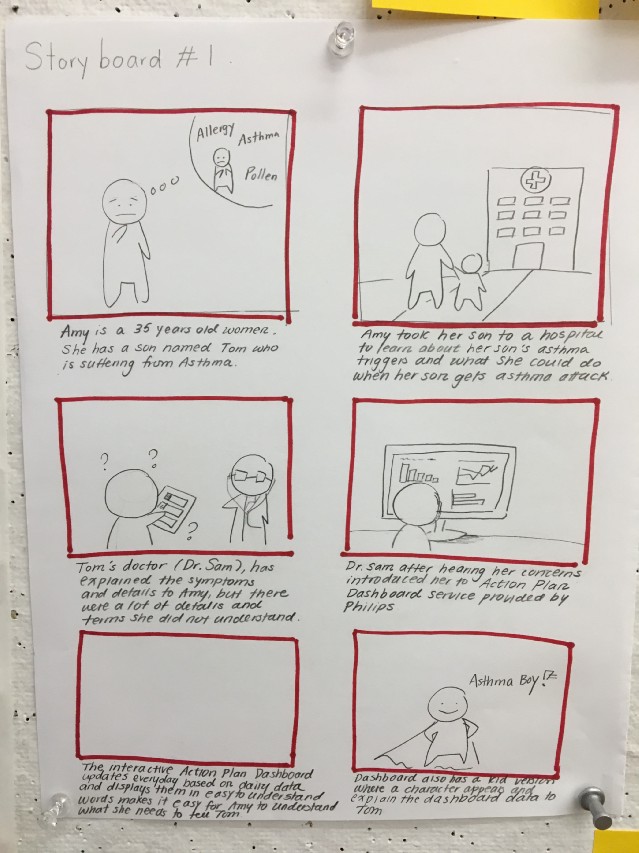 Story board #1.
Allergy
Asthma
Pollen
Amy is a 35 years old women.
She has a son named Tom who
is suffering from Asthma.
Amy took her son to a hospital
to learn about her son's asthma
triggers and what she could do
when her son gets asthma attack.
? ?
?
Tom's doctor (Dr. Sam), has
explained the symptoms
and details to Amy, but there
were a lot of details and
terms she did not understand.
Dr. Sam after hearing her concerns
introduced her to Action Plan
Dashboard service provided by
Philips
The interactive Action Plan Dashboard
updates everyday based on daily data
and displays them in easy to understand
words makes it easy for Amy to understand
what she needs to tell Tom
Asthma Boy!
Dashboard also has a kid version
where a character appears and
explain the dashboard data to
Tom